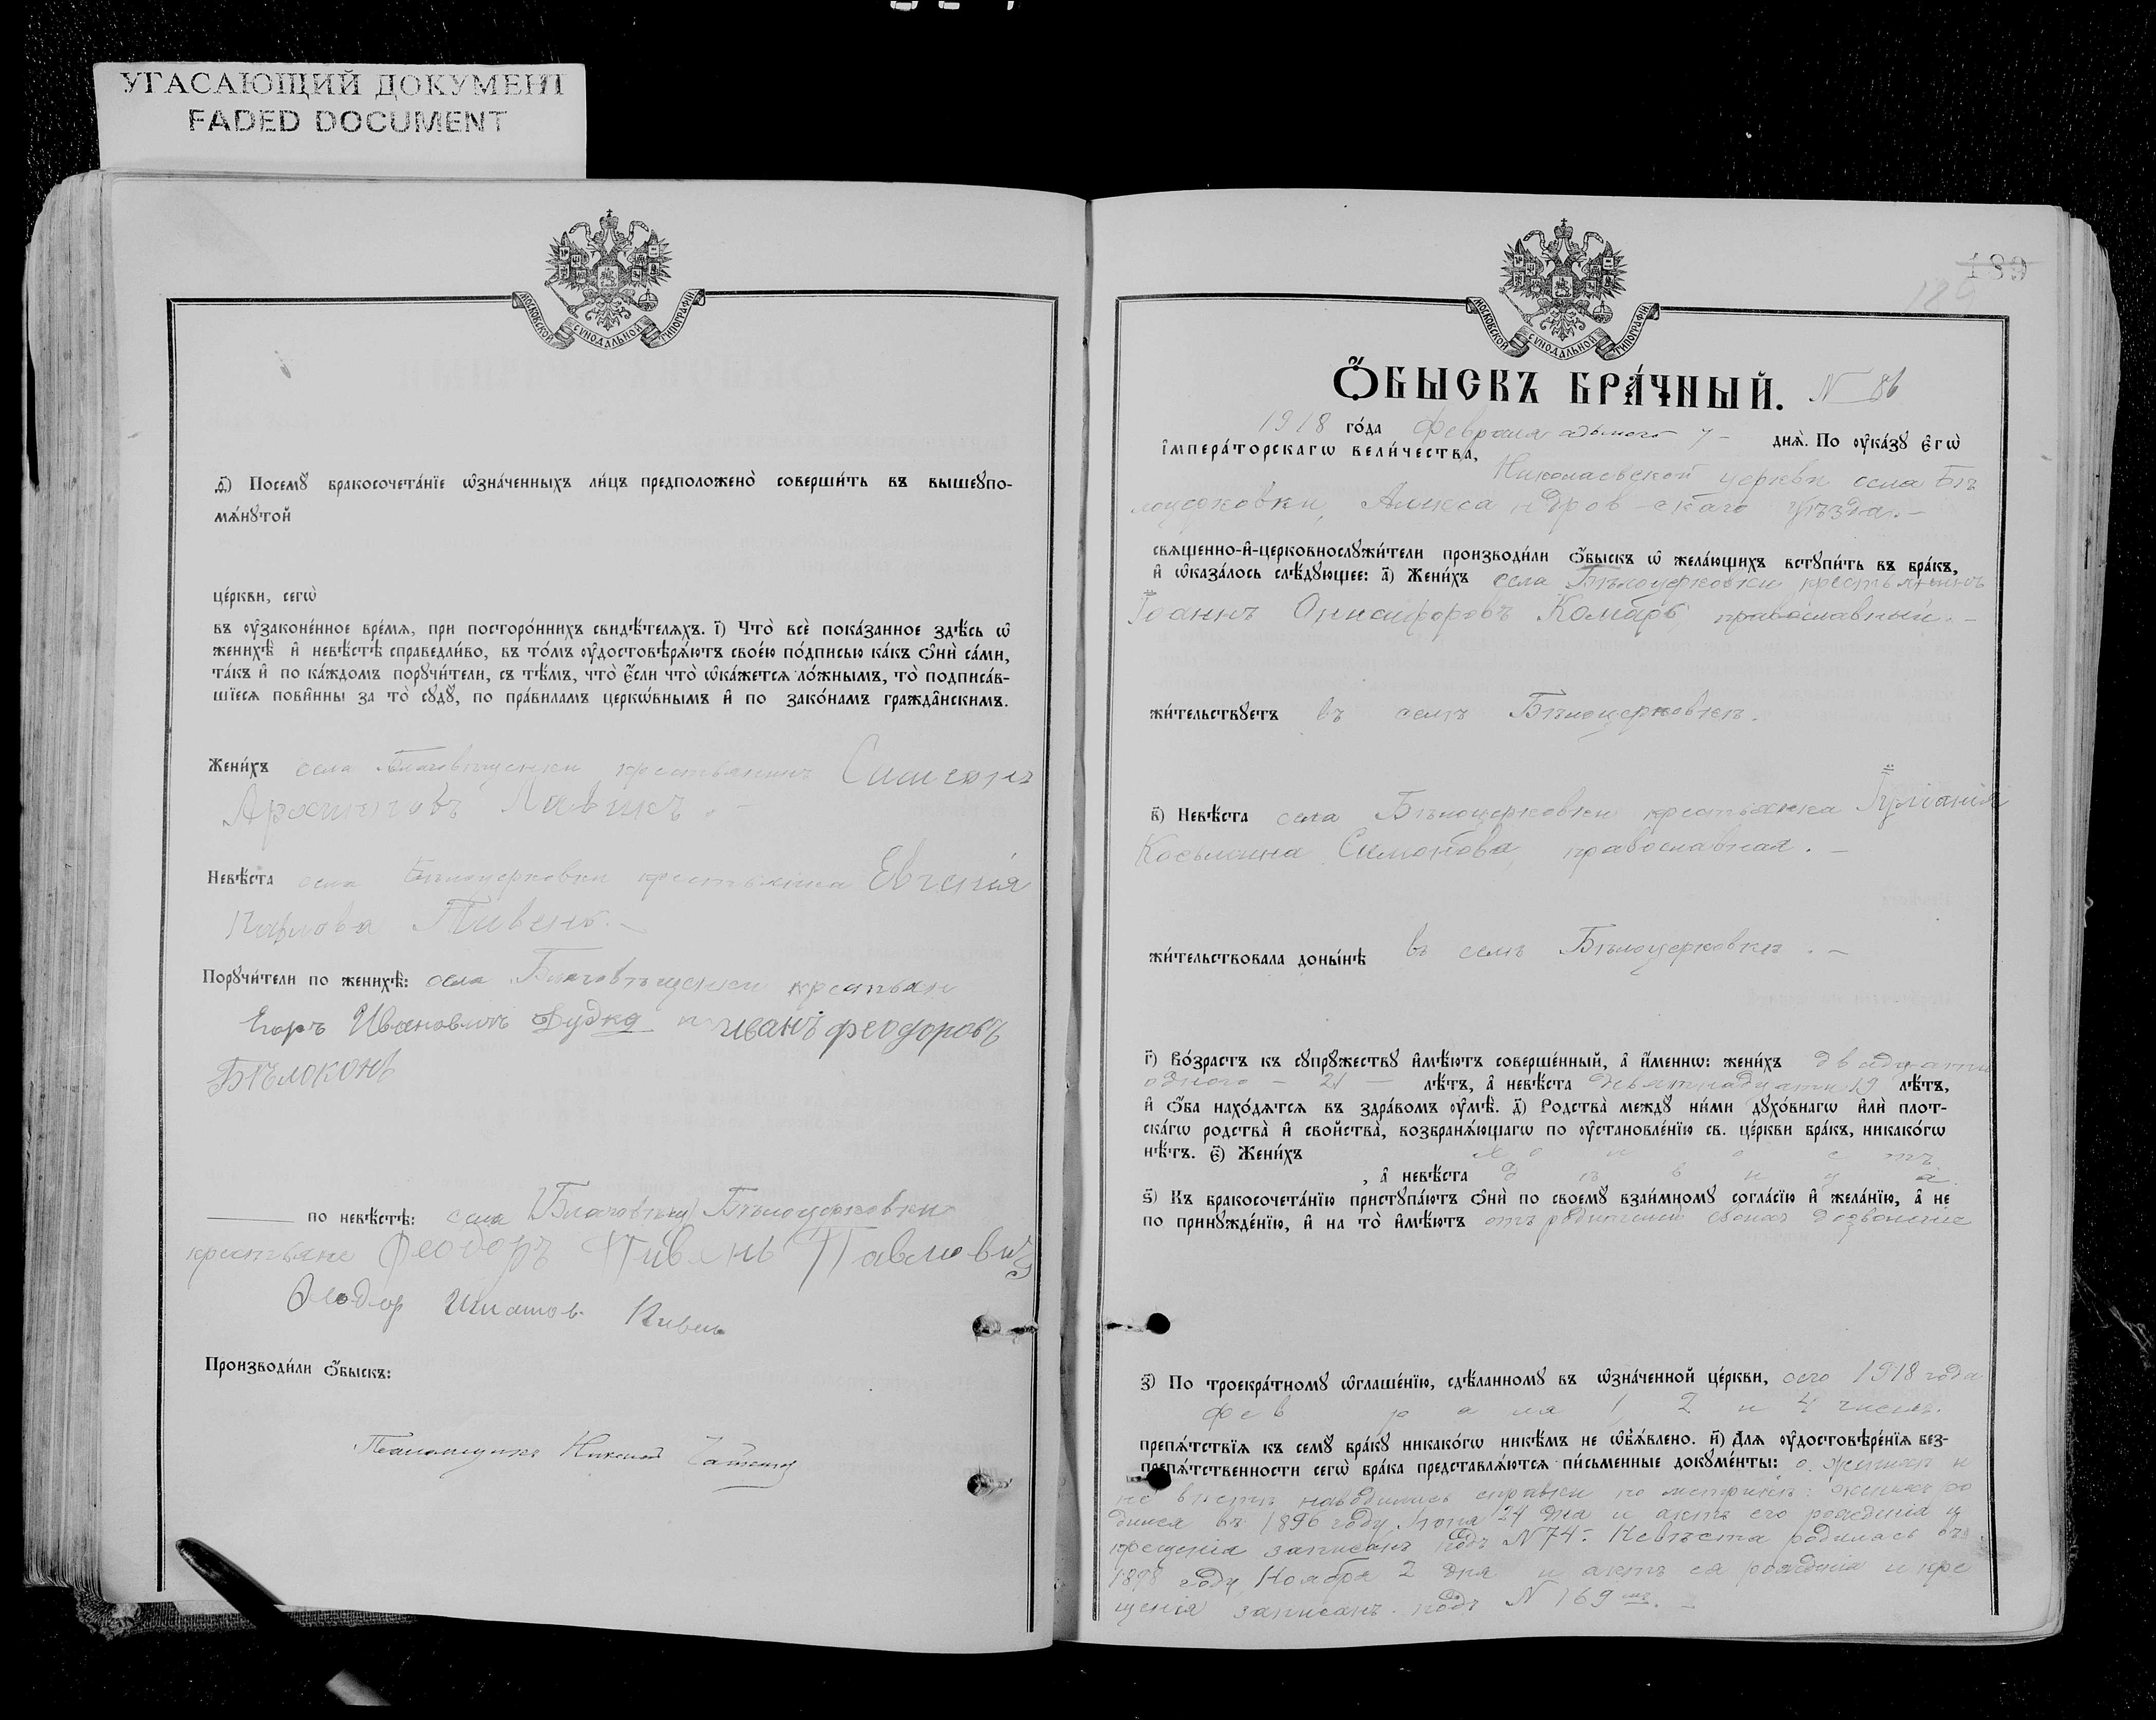 УГАСАЮЩИЙ ДОКУМЕНТ
FADED DOCUMENT
МОСКОВСКОЙ СѴНОДАЛЬНОЙ ТИПОГРАФІИ
д҃і) Посемꙋ̀ бракосочета́нїе ѡ҆зна́ченныхъ ли́цъ предположено̀ соверши́ть въ вышеꙋпо-
мѧ́нꙋтой
це́ркви, сегѡ̀
въ ᲂу҆законе́нное вре́мѧ, при посторо́ннихъ свидѣ́телѧхъ. і҃) Что̀ всѐ пока́занное здѣ́сь ѡ҆
женихѣ̀ и҆ невѣ́стѣ справедли́во, въ то́мъ ᲂу҆достовѣрѧ́ютъ свое́ю по́дписью ка́къ ѻ҆нѝ са́ми,
та́къ и҆ по ка́ждомъ порꙋчи́тели, съ тѣ́мъ, что̀ є҆́сли что̀ ѡ҆ка́жетсѧ ло́жнымъ, то̀ подписа́в-
шїесѧ пови́нны за то̀ сꙋдꙋ̀, по пра́виламъ церкѡ́внымъ и҆ по зако́намъ гражда́нскимъ.
Жени́хъ села Благовѣщенки крестьянинъ Симеонъ
Невѣ́ста села Бѣлоцерковки крестьянка Евгенія
Павлова Пивень. –
Порꙋчи́тели по женихѣ̀: села Благовѣщенки крестьян
Егоръ Ивановичъ Дудка и Иванъ феодоровъ
Бѣлоконь
по невѣ́стѣ: села Бѣлоцерковки
крестьяне Феодоръ Пивень Павлович
Феодор Игнатов Пивень
Производи́ли ѻ҆́быскъ:
Псаломщикъ Николай
МОСКОВСКОЙ СѴНОДАЛЬНОЙ ТИПОГРАФІИ
189
189
Ѻ҆́БЫСКЪ БРА́ЧНЫЙ. N 86
1918 го́да Февраля седьмого 7 – днѧ̀. По ᲂу҆ка́зꙋ є҆гѡ̀
і҆мпера́торскагѡ вели́чества,
Николаевской церкви села Бѣ
лоцерковки, Александровскаго уѣзда. –
свѧщенно-и҆-церковнослꙋжи́тели производи́ли ѻ҆́быскъ ѡ҆ жела́ющихъ встꙋпи́ть въ бра́къ,
и҆ ѡ҆каза́лось слѣ́дꙋющее: а҃) Жени́хъ села Бѣлоцерковки крестьянинъ
Іоаннъ Онисифоровъ Комаръ православный. –
жи́тельствꙋетъ въ селѣ Бѣлоцерковкѣ.
в҃) Невѣ́ста села Бѣлоцерковки крестьянка Іуліанія
Косьмина Симонова, православная. –
жи́тельствовала доны́нѣ въ селѣ Бѣлоцерковкѣ. –
г҃) Во́зрастъ къ сꙋпрꙋ́жествꙋ и҆мѣ́ютъ соверше́нный, а҆ и҆́меннѡ: жени́хъ двадцати
одного – 21 – лѣ́тъ, а҆ невѣ́ста девятнадцати 19 лѣ́тъ,
и҆ ѻ҆́ба нахо́дѧтсѧ въ здра́вомъ ᲂу҆мѣ̀. д҃) Родства̀ междꙋ̀ ни́ми дꙋхо́внагѡ и҆лѝ плот-
ска́гѡ родства̀ и҆ свойства̀, возбранѧ́ющагѡ по ᲂу҆становле́нїю св. це́ркви бра́къ, никако́гѡ
нѣ́тъ. є҃) Жени́хъ холостъ
, а҆ невѣ́ста дѣвица.
ѕ҃) Къ бракосочета́нїю пристꙋпа́ютъ ѻ҆нѝ по своемꙋ̀ взаи́мномꙋ согла́сїю и҆ жела́нїю, а҆ не
по принꙋжде́нїю, и҆ на то̀ и҆мѣ́ютъ отъ родителей своихъ дозволеніе
з҃) По троекра́тномꙋ ѡ҆глаше́нїю, сдѣ́ланномꙋ въ ѡ҆зна́ченной це́ркви, сего 1918 года
февраля 1, 2 и 4 чиселъ.
препѧ́тствїѧ къ семꙋ̀ бра́кꙋ никако́гѡ никѣ́мъ не ѡ҆бъѧ́влено. и҃) Длѧ ᲂу҆достовѣре́нїѧ без-
препѧ́тственности сегѡ̀ бра́ка представлѧ́ютсѧ пи́сьменные докꙋме́нты: о женихѣ и
невѣстѣ наводились справки по метрикѣ: женихъ ро
дился въ 1896 году, 24 дня и актъ его рожденія и
крещенія записанъ подъ N 74. – Невѣста родилась въ
1898 году Ноября 2 дня и актъ ея рожденія и кре
щенія записанъ подъ N 169 мъ. –